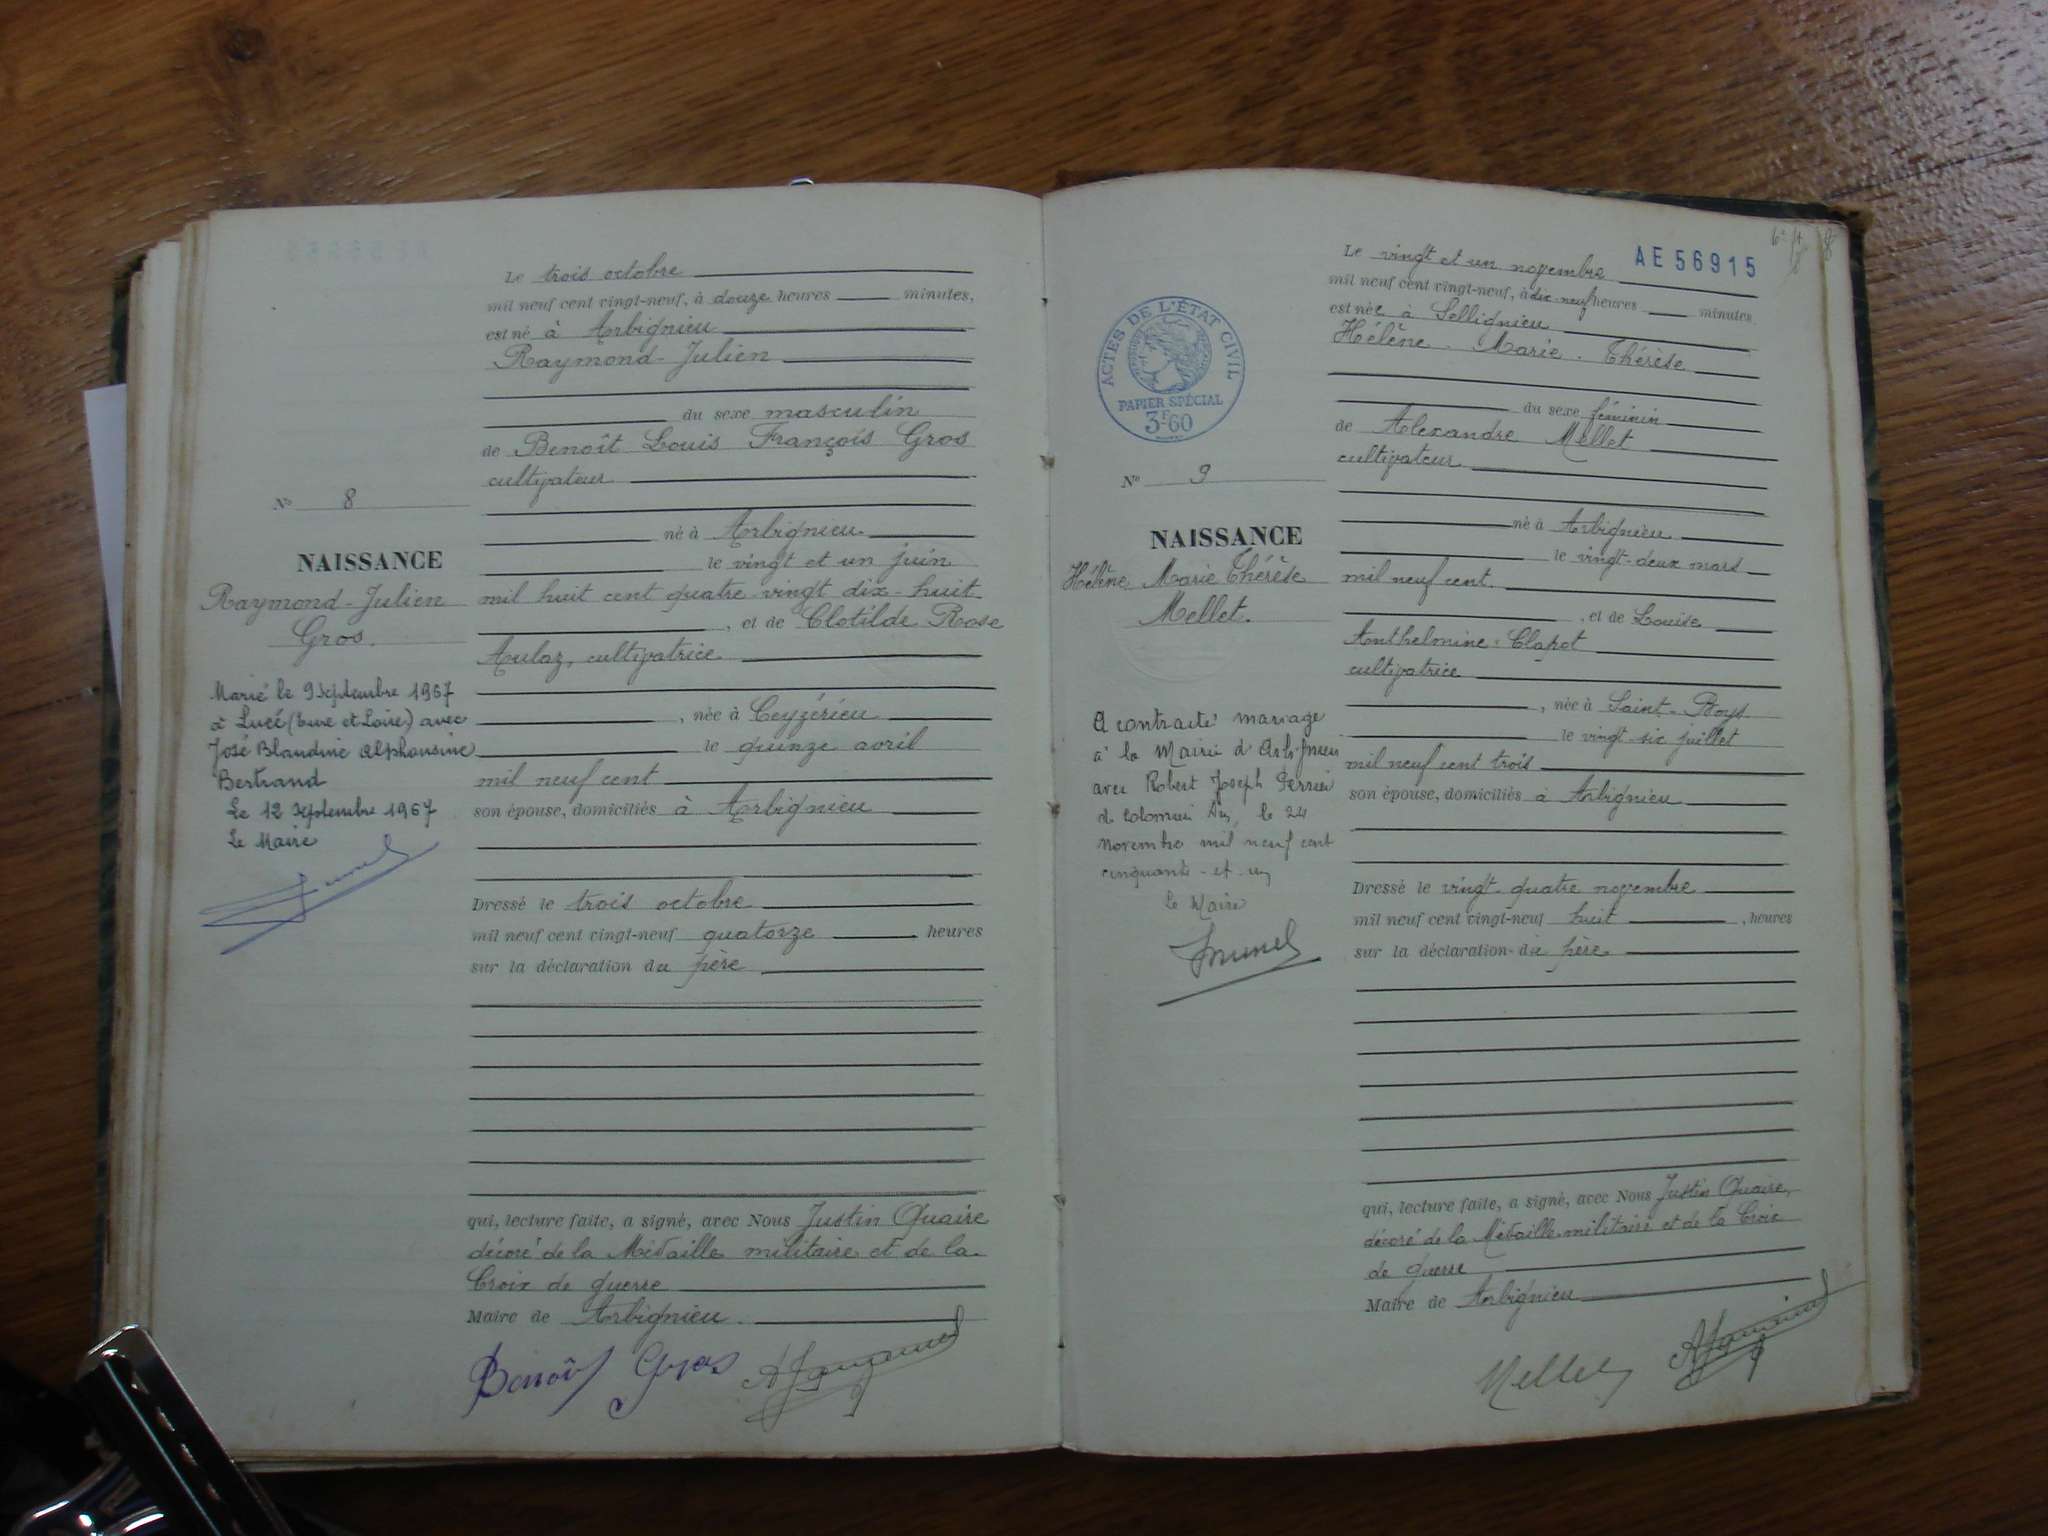 Le trois octobre
mil neuf cent vingt-neuf, à douze heures minutes,
est né à Arbignieu
Raymond-Julien
du sexe masculin
de Benoît Louis François Gros
cultivateur
né à Arbignieu
le vingt et un juin
mil huit cent quatre-vingt dix-huit
, et de Clotilde Rose
Aulaz, cultivatrice
, née à Ceyzérieu
le quinze avril
mil neuf cent
son épouse, domiciliés à Arbignieu
Dressé le trois octobre
mil neuf cent vingt-neuf quatorze heures
sur la déclaration du père
qui, lecture faite, a signé, avec Nous Justin Quaire
décoré de la Médaille militaire et de la
Croix de guerre
Maire de Arbignieu
Benoît Gros
N° 8
NAISSANCE
Raymond-Julien
Gros.
Marié le 9 septembre 1967
à Lucé (Eure et Loire) avec
José Blandine Alphonsine
Bertrand
Le 12 septembre 1967
Le Maire
AE 56915
Le vingt et un novembre
mil neuf cent vingt-neuf, à dix-neuf heures minutes
est née à Sellignieu
Hélène-Marie-Thérèse
du sexe féminin
de Alexandre Mellet
cultivateur
né à Arbignieu
le vingt-deux mars
mil neuf cent
, et de Louise
Anthelmine Clapot
cultivatrice
, née à Saint-Boys
le vingt-six juillet
mil neuf cent trois
son épouse, domiciliés à Arbignieu
Dressé le vingt-quatre novembre
mil neuf cent vingt-neuf huit , heures
sur la déclaration du père
qui, lecture faite, a signé, avec Nous Justin Quaire,
décoré de la Médaille militaire et de la Croix
de guerre
Maire de Arbignieu
Mellet
ACTES DE L'ÉTAT CIVIL
PAPIER SPÉCIAL
3F60
N° 9
NAISSANCE
Hélène Marie Thérèse
Mellet.
A contracté mariage
à la Mairie d'Arbignieu
avec Robert Joseph Perrier
d Colomieu Ain, le 24
Novembre mil neuf cent
cinquante-et-un
Le Maire